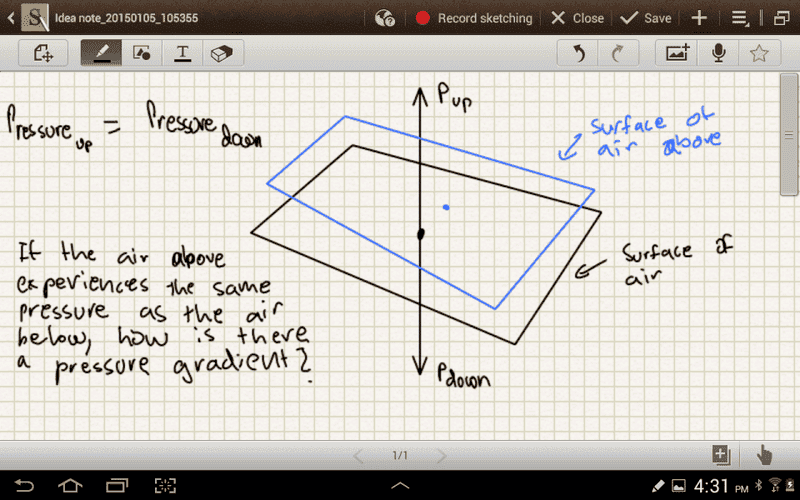 Idea note_20150105_105355
Record sketching
Close
Save
T
Pressure up = Pressure down
P up
Surface of
air above
Surface of
air
If the air above
experiences the same
pressure as the air
below, how is there
a pressure gradient?
P down
1/1
4:31 PM